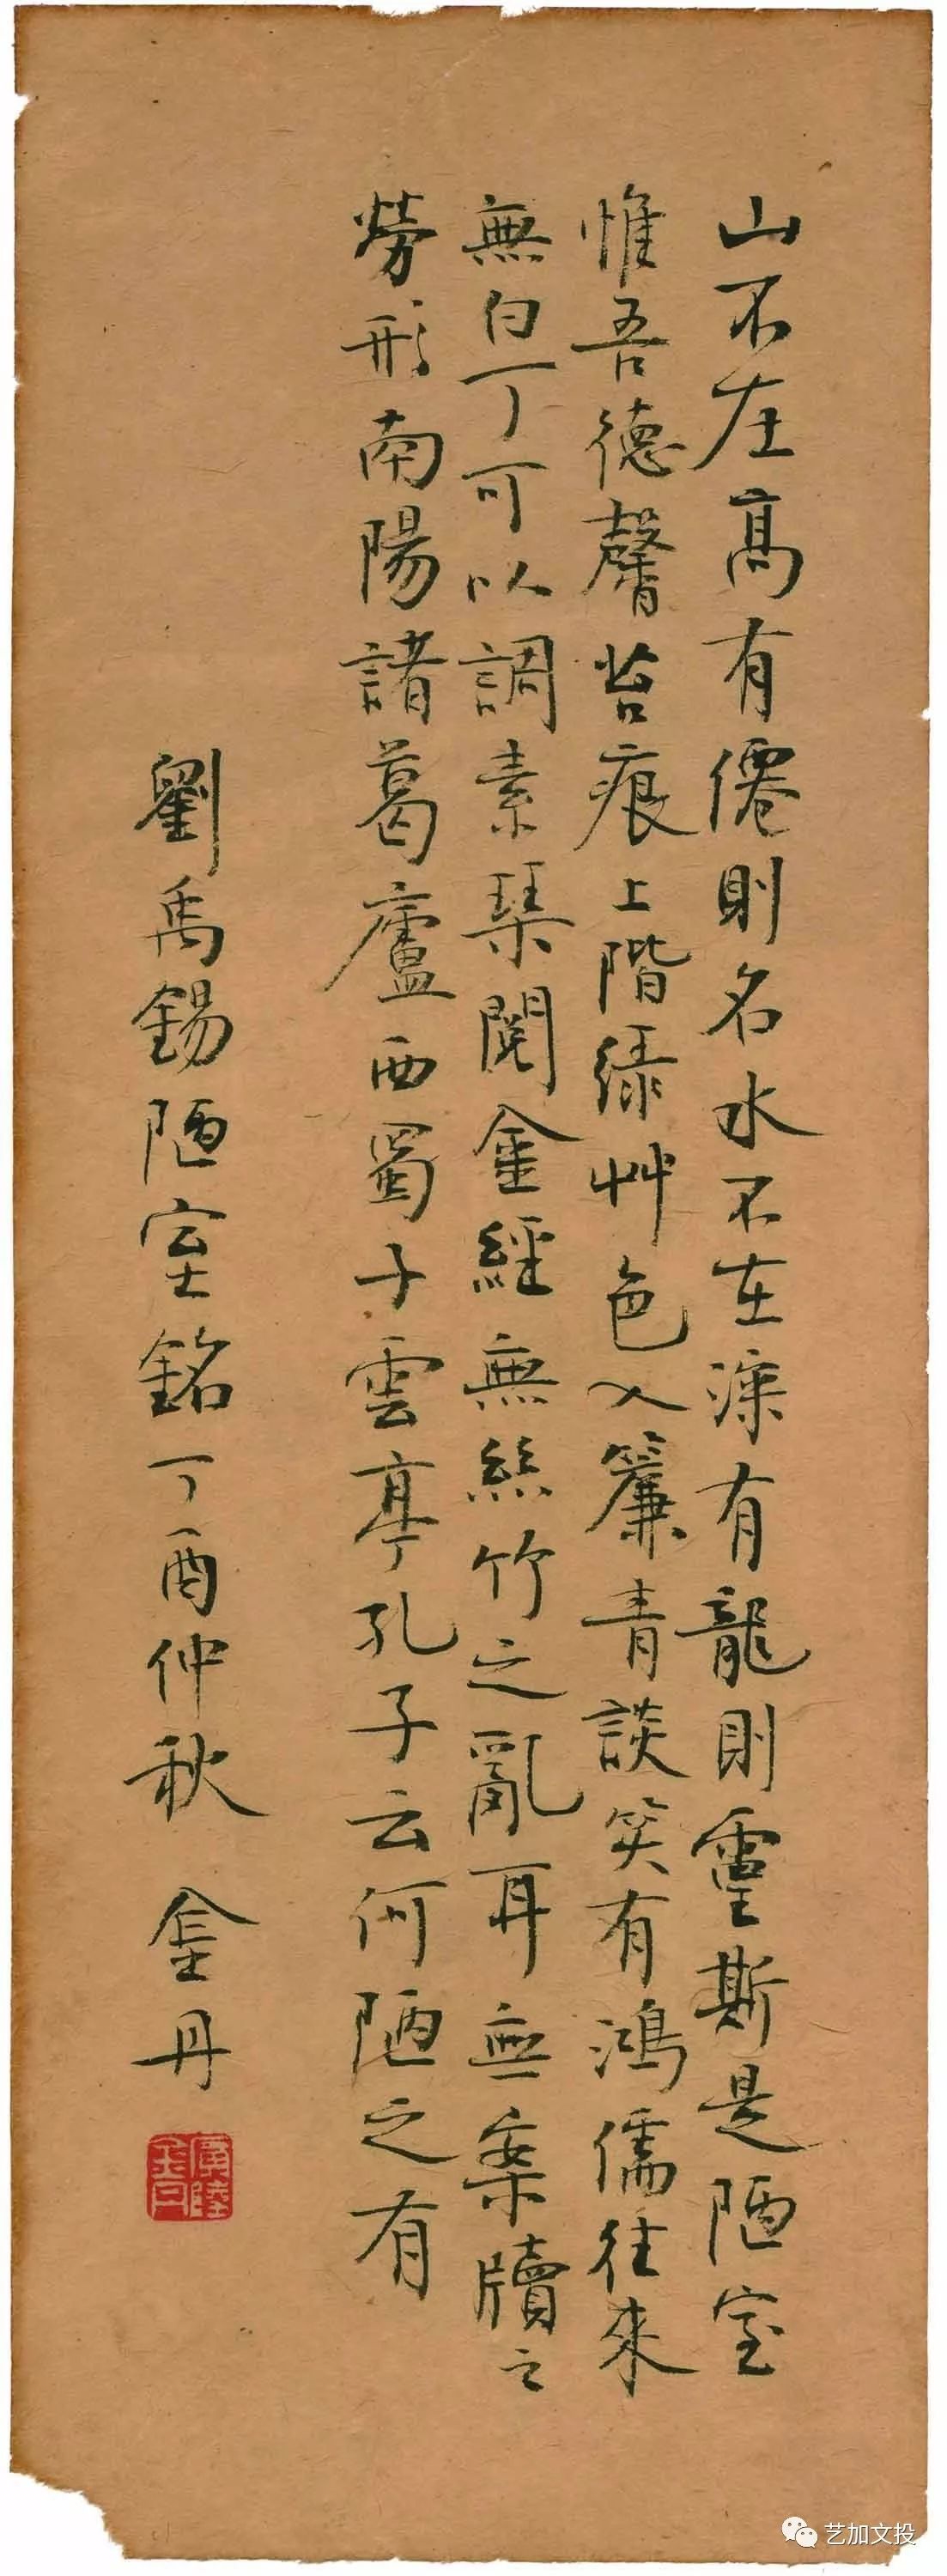 山不在高有僊則名水不在深有龍則靈斯是陋室
惟吾德馨苔痕上階綠艸色入簾青談笑有鴻儒往來
無白丁可以調素琴閱金經無絲竹之亂耳無案牘之
勞形南陽諸葛廬西蜀子雲亭孔子云何陋之有
劉禹錫陋室銘丁酉仲秋 金丹
艺加文投